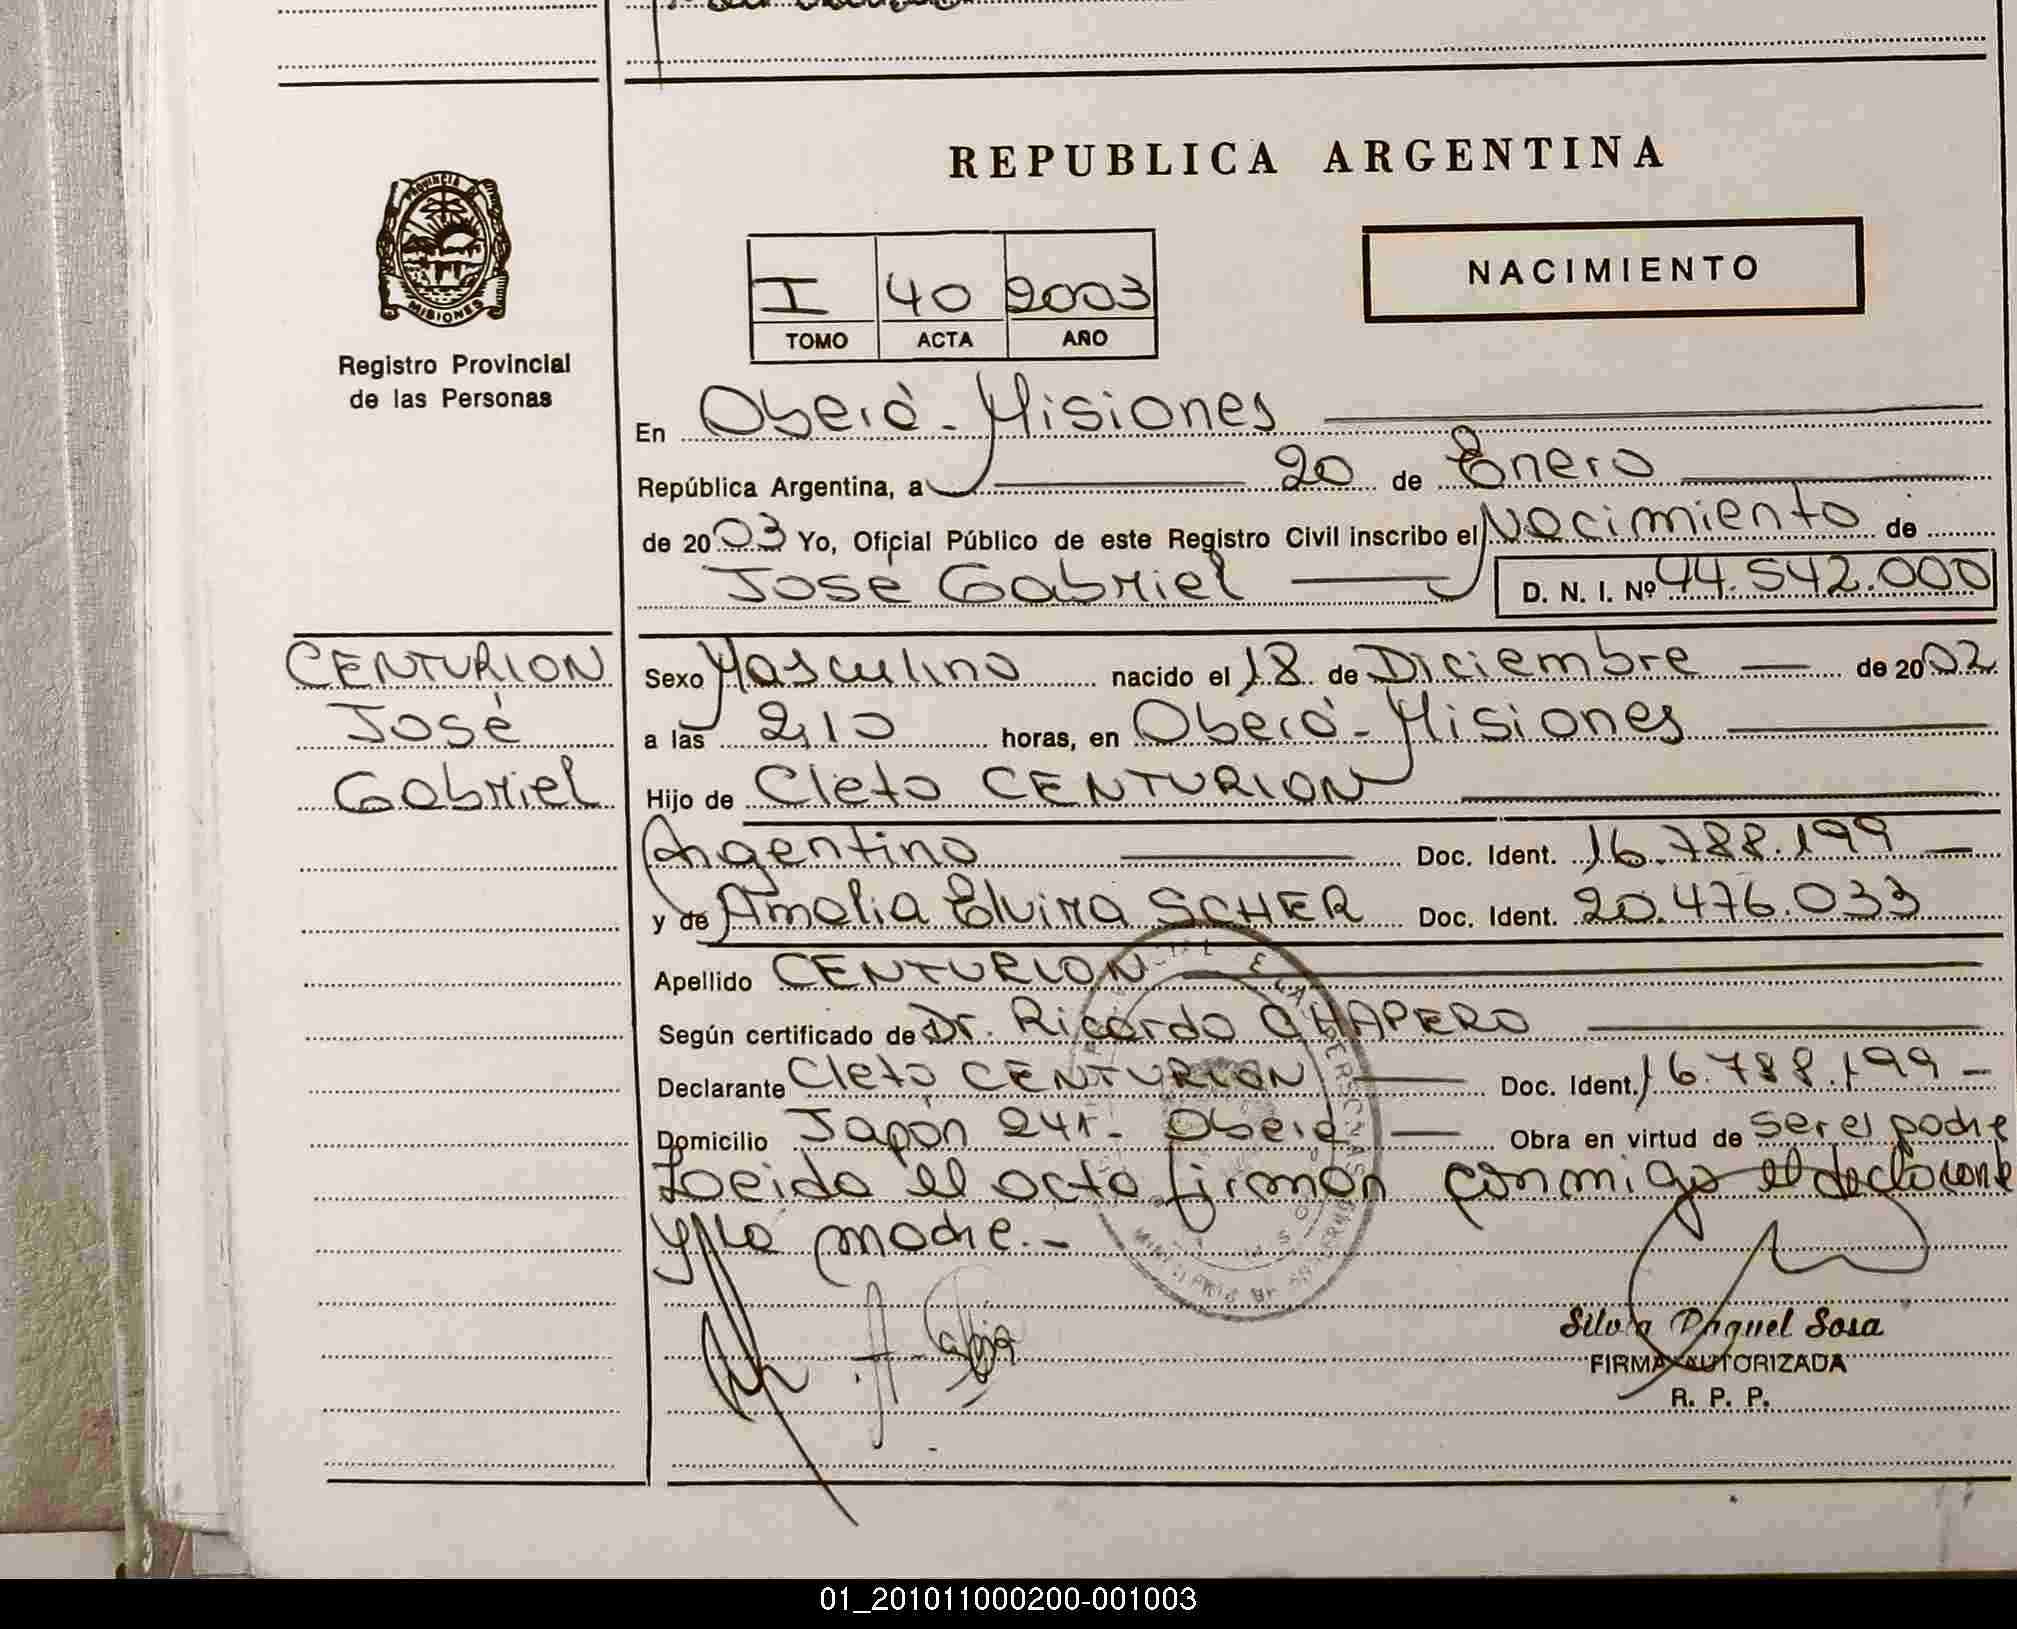 REPUBLICA ARGENTINA
PROVINCIA DE
MISIONES
Registro Provincial
de las Personas
I 40 2003
TOMO ACTA AÑO
NACIMIENTO
En Oberá - Misiones
República Argentina, a 20 de Enero
de 2003 Yo, Oficial Público de este Registro Civil inscribo el Nacimiento de
José Gabriel D. N. I. Nº 44.542.000
CENTURION
José
Gabriel
Sexo Masculino nacido el 18 de Diciembre de 2002
a las 2,10 horas, en Oberá - Misiones
Hijo de Cleto CENTURION
Argentino Doc. Ident. 16.788.199
y de Amalia Elvira SCHER Doc. Ident. 20.476.033
Apellido CENTURION
Según certificado de Dr. Ricardo CHAPERO
Declarante Cleto CENTURION Doc. Ident. 16.788.199
Domicilio Japón Oberá Obra en virtud de ser el padre
Leída el acta firman conmigo el declarante
y la madre.-
Silvia Raquel Sosa
FIRMA AUTORIZADA
R. P. P.
01_201011000200-001003